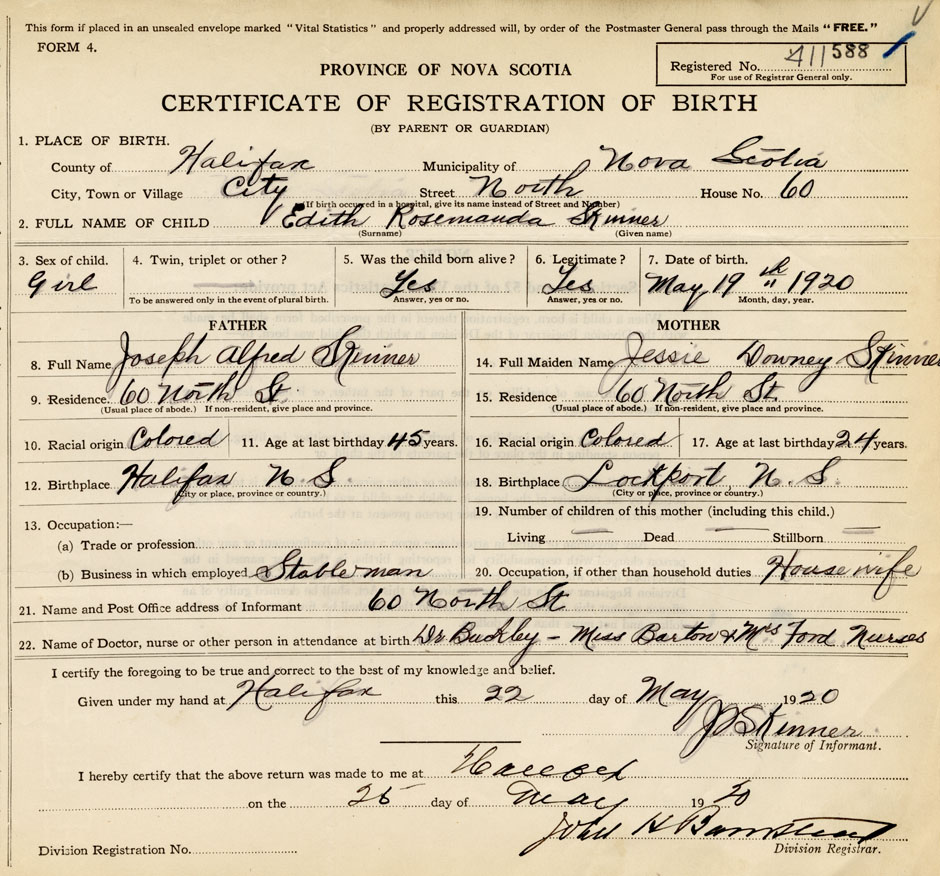 This form if placed in an unsealed envelope marked "Vital Statistics" and properly addressed will, by order of the Postmaster General pass through the Mails "FREE."
FORM 4.
Registered No. 411588
For use of Registrar General only.
PROVINCE OF NOVA SCOTIA
CERTIFICATE OF REGISTRATION OF BIRTH
(BY PARENT OR GUARDIAN)
1. PLACE OF BIRTH.
County of Halifax Municipality of Nova Scotia
City, Town or Village City Street North House No. 60
(If birth occurred in a hospital, give its name instead of Street and Number)
2. FULL NAME OF CHILD Edith Rosemanda Skinner
(Surname) (Given name)
3. Sex of child. 4. Twin, triplet or other? 5. Was the child born alive? 6. Legitimate? 7. Date of birth.
Girl Yes Yes May 19th 1920
To be answered only in the event of plural birth. Answer, yes or no. Answer, yes or no. Month, day, year.
FATHER MOTHER
8. Full Name Joseph Alfred Skinner 14. Full Maiden Name Jessie Downey Skinner
9. Residence. 60 North St. 15. Residence 60 North St.
(Usual place of abode.) If non-resident, give place and province. (Usual place of abode.) If non-resident, give place and province.
10. Racial origin Colored 11. Age at last birthday 45 years. 16. Racial origin Colored 17. Age at last birthday 24 years.
12. Birthplace Halifax N. S. 18. Birthplace Lockport, N. S.
(City or place, province or country.) (City or place, province or country.)
13. Occupation:— 19. Number of children of this mother (including this child.)
(a) Trade or profession Living Dead Stillborn
(b) Business in which employed Stableman 20. Occupation, if other than household duties Housewife
21. Name and Post Office address of Informant 60 North St
22. Name of Doctor, nurse or other person in attendance at birth Dr Buckley - Miss Barton & Mrs Ford Nurses
I certify the foregoing to be true and correct to the best of my knowledge and belief.
Given under my hand at Halifax this 22 day of May 1920
Skinner
Signature of Informant.
I hereby certify that the above return was made to me at
on the 25 day of May 1920
John H
Division Registration No. Division Registrar.